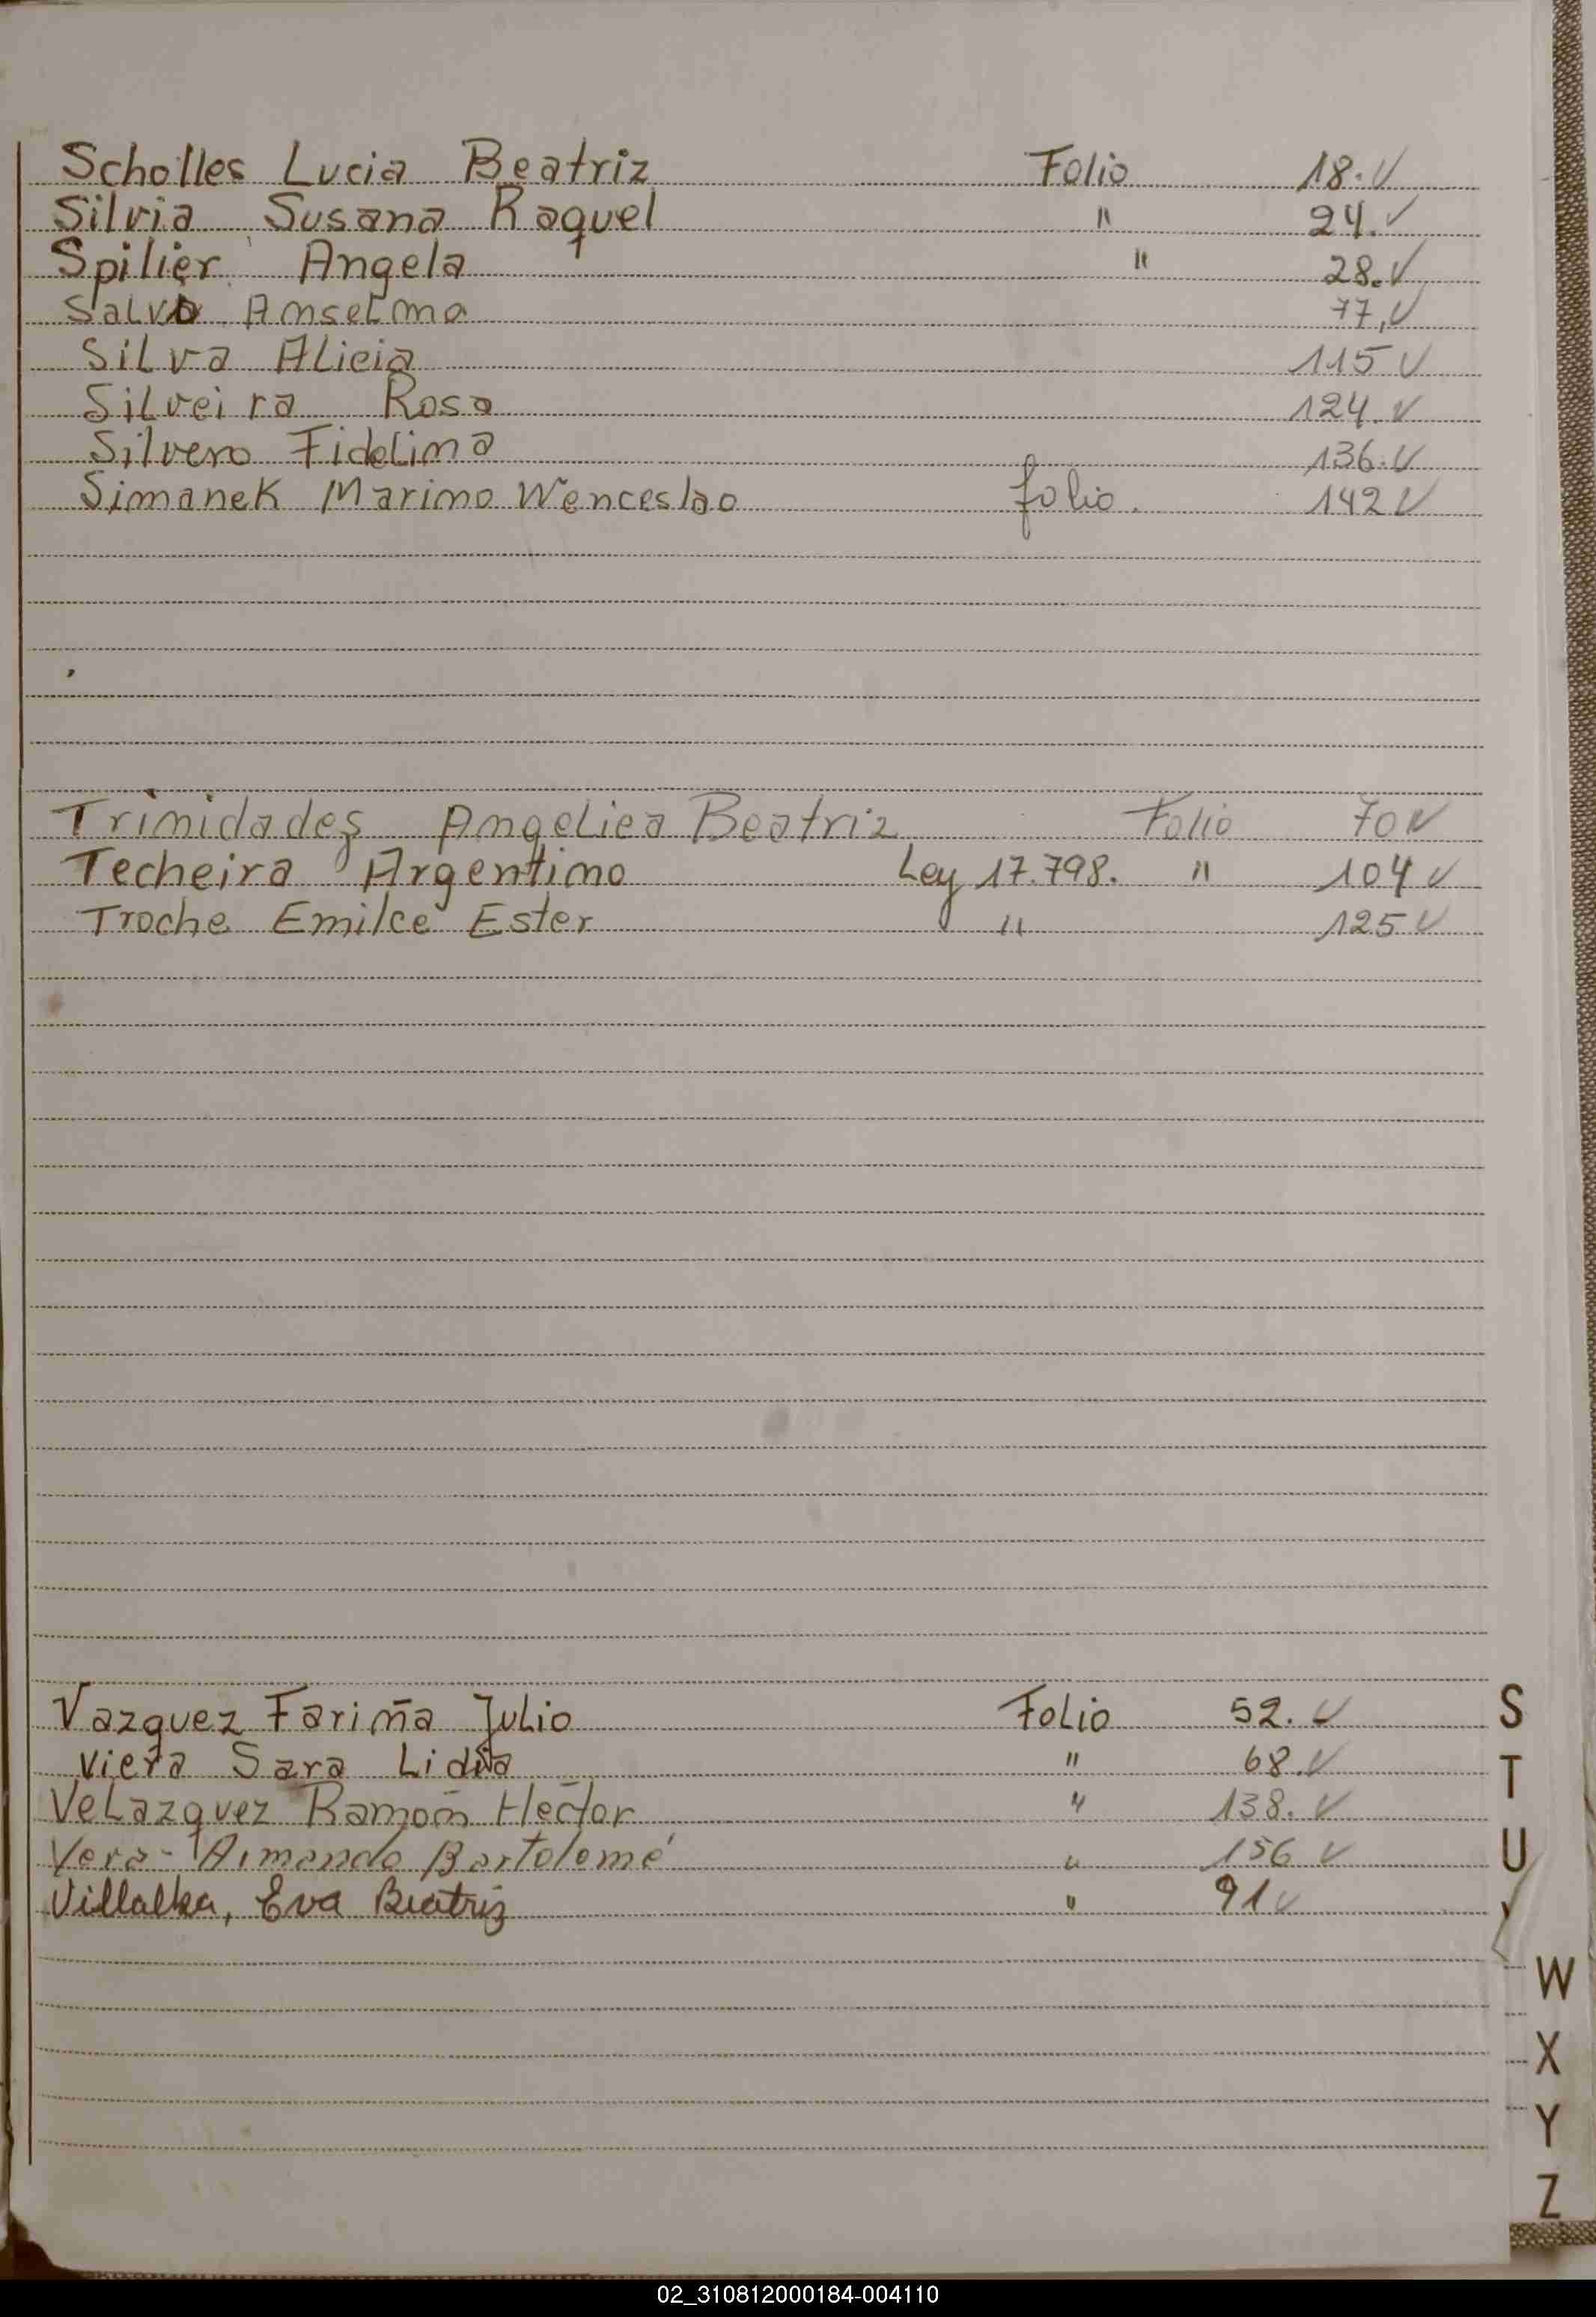 Scholles Lucia Beatriz Folio 18. ✓
Silvia Susana Raquel " 24. ✓
Spilier Angela " 28. ✓
Salvo Anselmo 77, ✓
Silva Alicia 115 ✓
Silveira Rosa 124. ✓
Silvero Fidelina 136. ✓
Simanek Marino Wenceslao folio. 142 ✓
Trinidades Angelica Beatriz Folio 70 ✓
Techeira Argentino Ley 17.798. " 104 ✓
Troche Emilce Ester " 125 ✓
Vazquez Fariña Julio Folio 52. ✓
Viera Sara Lidia " 68. ✓
Velazquez Ramón Hector " 138. ✓
Vera - Armando Bartolomé " 156 ✓
Villalba, Eva Beatriz " 91 ✓
S
T
U
V
W
X
Y
Z
02_310812000184-004110